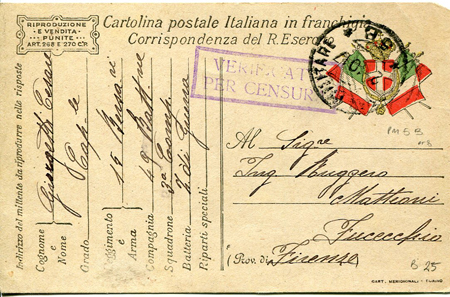 RIPRODUZIONE
E VENDITA
PUNITE
ART. 268 E 270 C.P.
Cartolina postale Italiana in franchigia
Corrispondenza del R. Esercito
VERIFICAT
PER CENSURA
MILITARE
Indirizzo del mittente da riprodurre nelle risposte
Cognome e Nome Giorgetti Cesare
Grado Cap. le
Reggimento e Arma 15
Compagnia 49 Batt.
Squadrone 3a Comp.
Batteria Z. di Guerra
Riparti speciali
Al Sigre
Ing Ruggero
Mattioni
Fucecchio
(Prov. di Firenze)
PM 5 B
B 25
CART. MERIDIONALI -